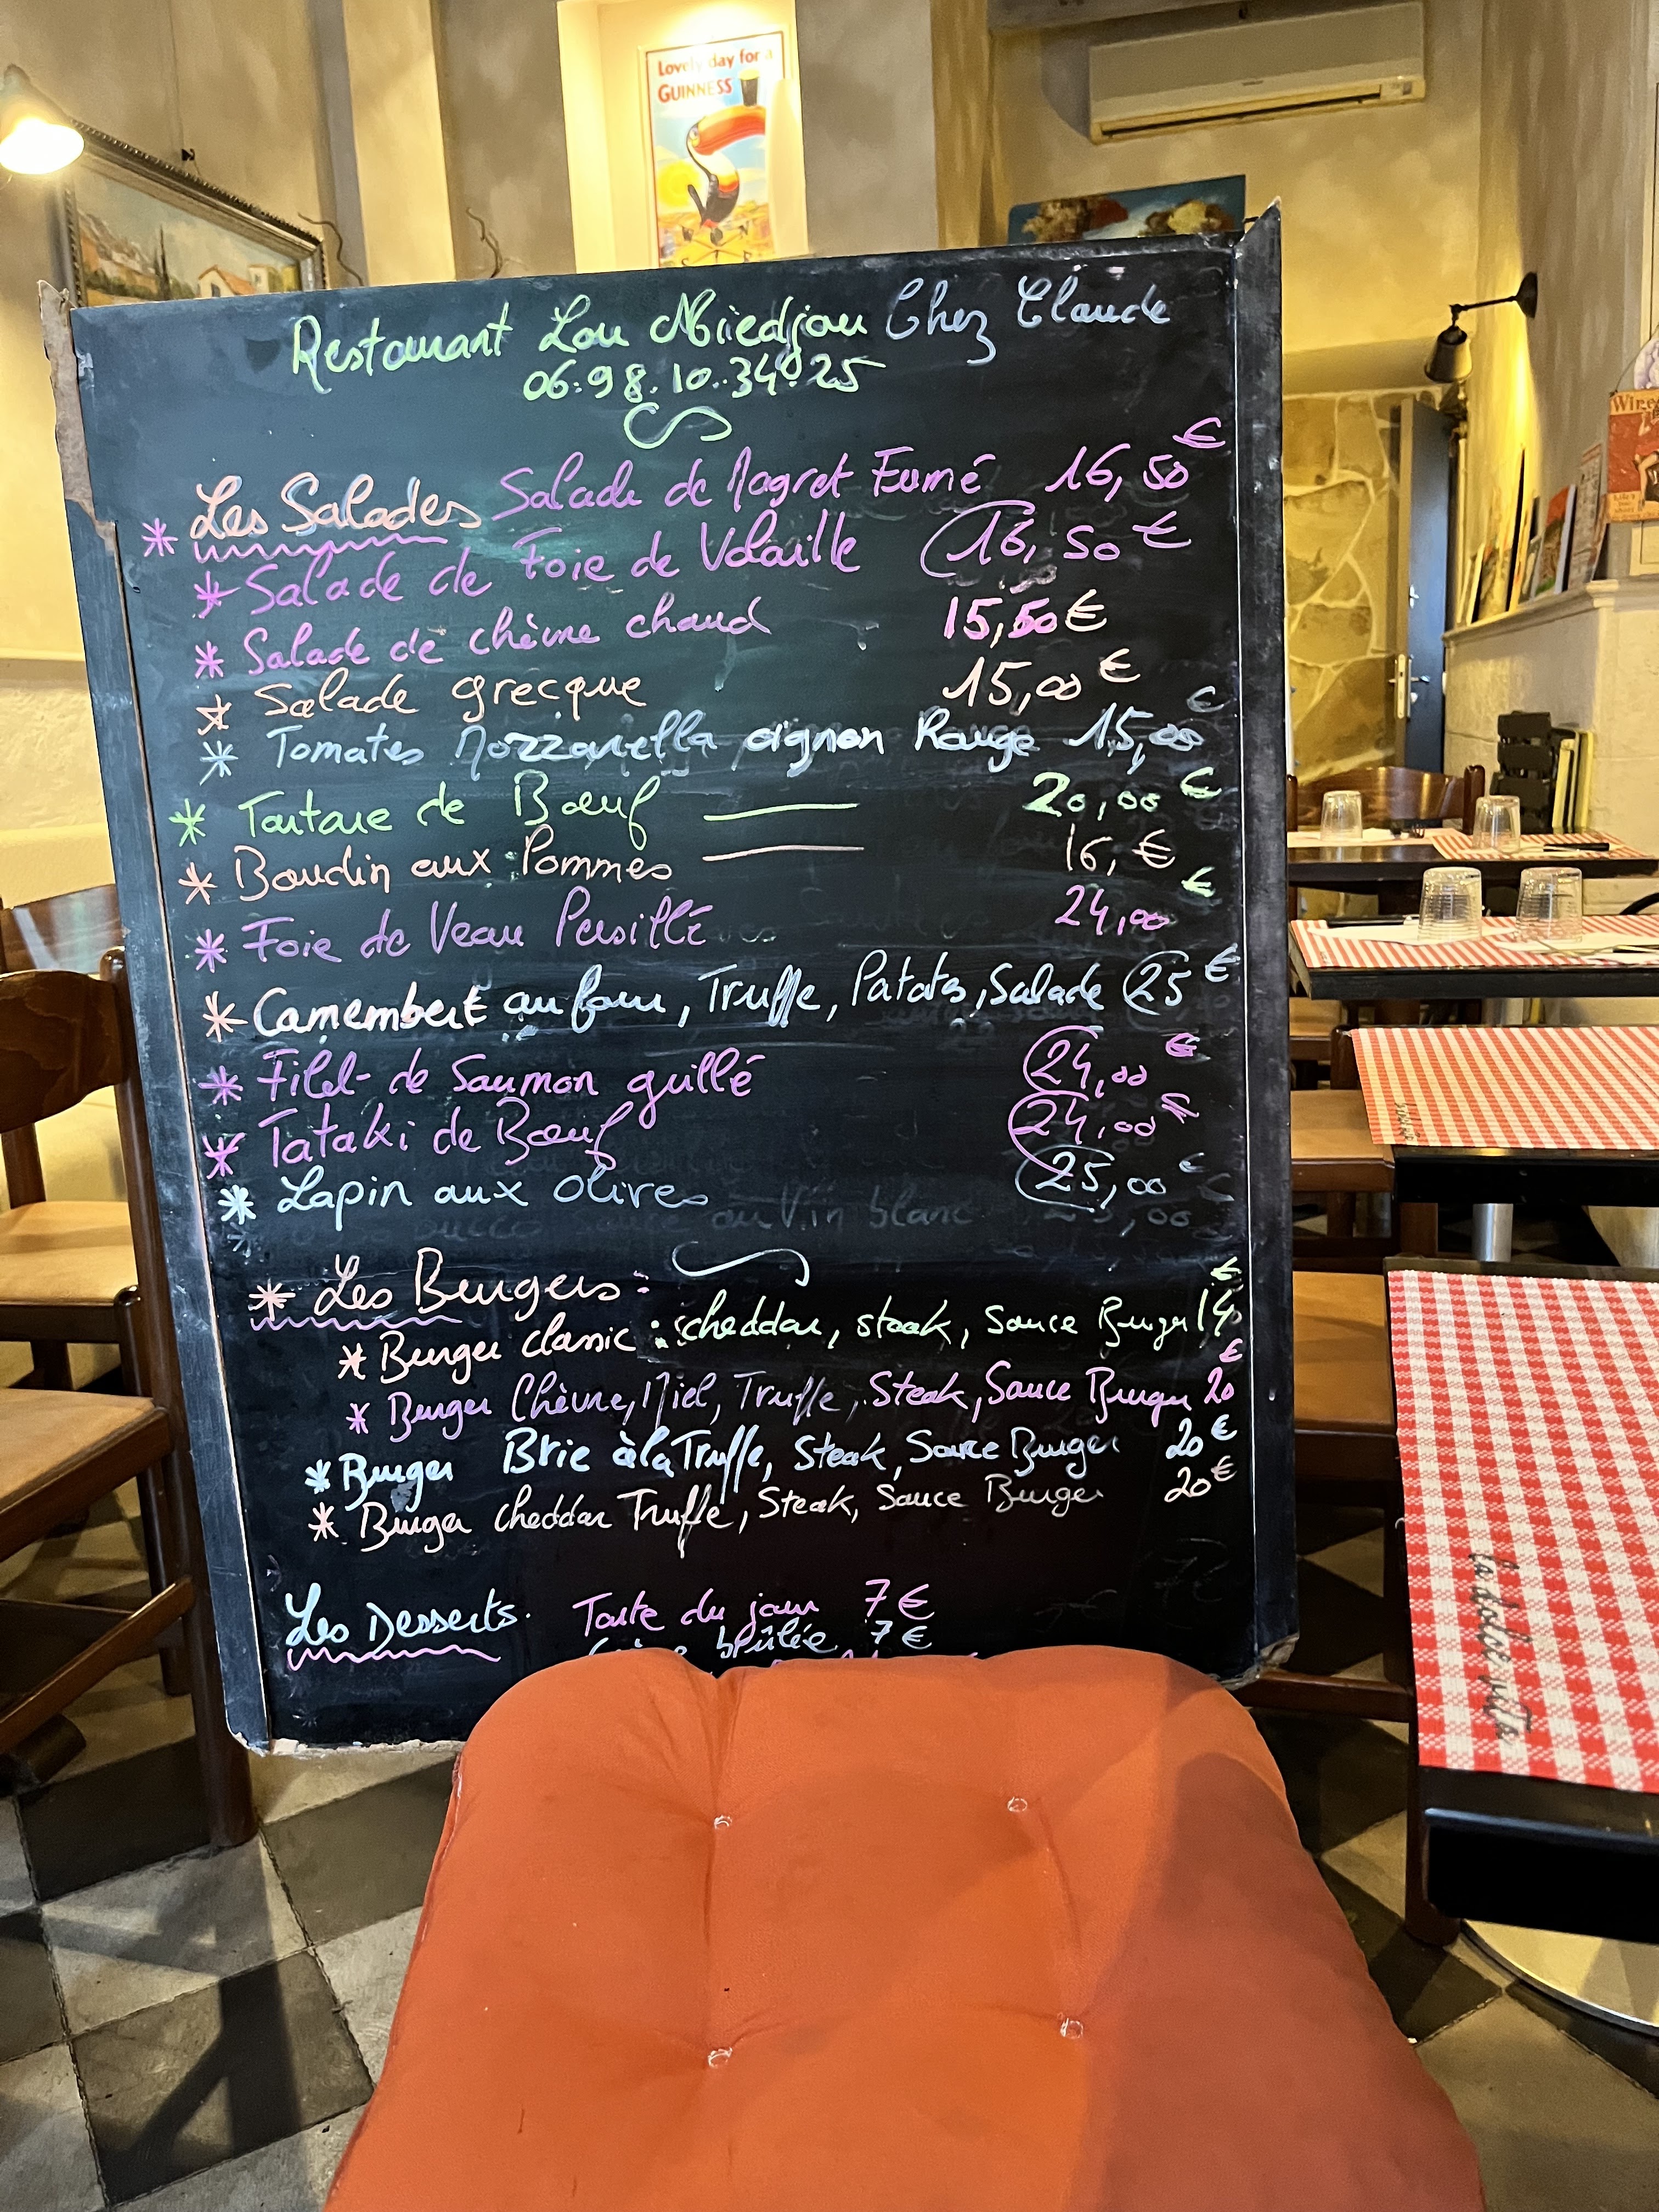 Lovely day for a
GUINNESS
Restaurant Lou Miedjou Chez Claude
06.98.10.34.25
Les Salades Salade de Magret Fumé 16,50€
* Salade de Foie de Volaille 16,50€
* Salade de chèvre chaud 15,50€
* Salade grecque 15,00€
* Tomates Mozzarella oignon Rouge 15,00€
* Tartare de Bœuf 20,00€
* Boudin aux Pommes 16,€
* Foie de Veau Persillé 24,00€
* Camembert au four, Truffe, Patates, Salade 25€
* Filet de Saumon grillé 24,00€
* Tataki de Bœuf 24,00€
* Lapin aux olives 25,00€
au Vin blanc
* Les Burgers:
* Burger classic : cheddar, steak, Sauce Burger 14€
* Burger Chèvre, Miel, Truffe, Steak, Sauce Burger 20€
* Burger Brie à la Truffe, Steak, Sauce Burger 20€
* Burger cheddar Truffe, Steak, Sauce Burger 20€
Les Desserts. Tarte du jour 7€
brûlée 7€
la dolce vita